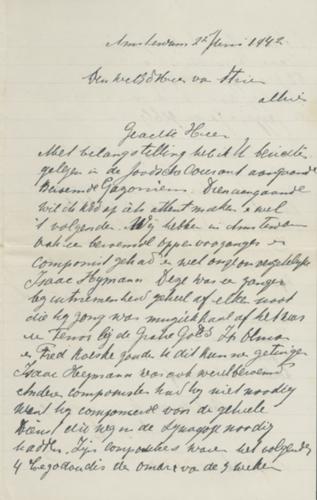 Amsterdam 22 Juni 1942
Den Heer van
alhier
Geachte Heer
Met belangstelling heb ik U berichten
gelezen in de Joodsche Courant aangaande
Beroemde Gazoniem. Dienaangaande
wil ik U op iets attent maken n wel
't volgende. Wij hebben in Amsterdam
ook een beroemde oppervoorganger en
componist gehad n wel onze onvergetelijke
Isaac Heymann Deze was een zanger
bij uitnemendheid geheel of elke noot
die hij zong was muziekaal of het was
en Tenor bij de Groote
n Fred kunt U dit kunnen getuigen
Isaac Heymann was ook wereldberoemd
Andere componisten had hij niet noodig
want hij componeerde voor de geheele
Dienst die hij in de Synagoge noodig
hadt. Zijn composities waren het volgende
4 de omar v de 3 weken